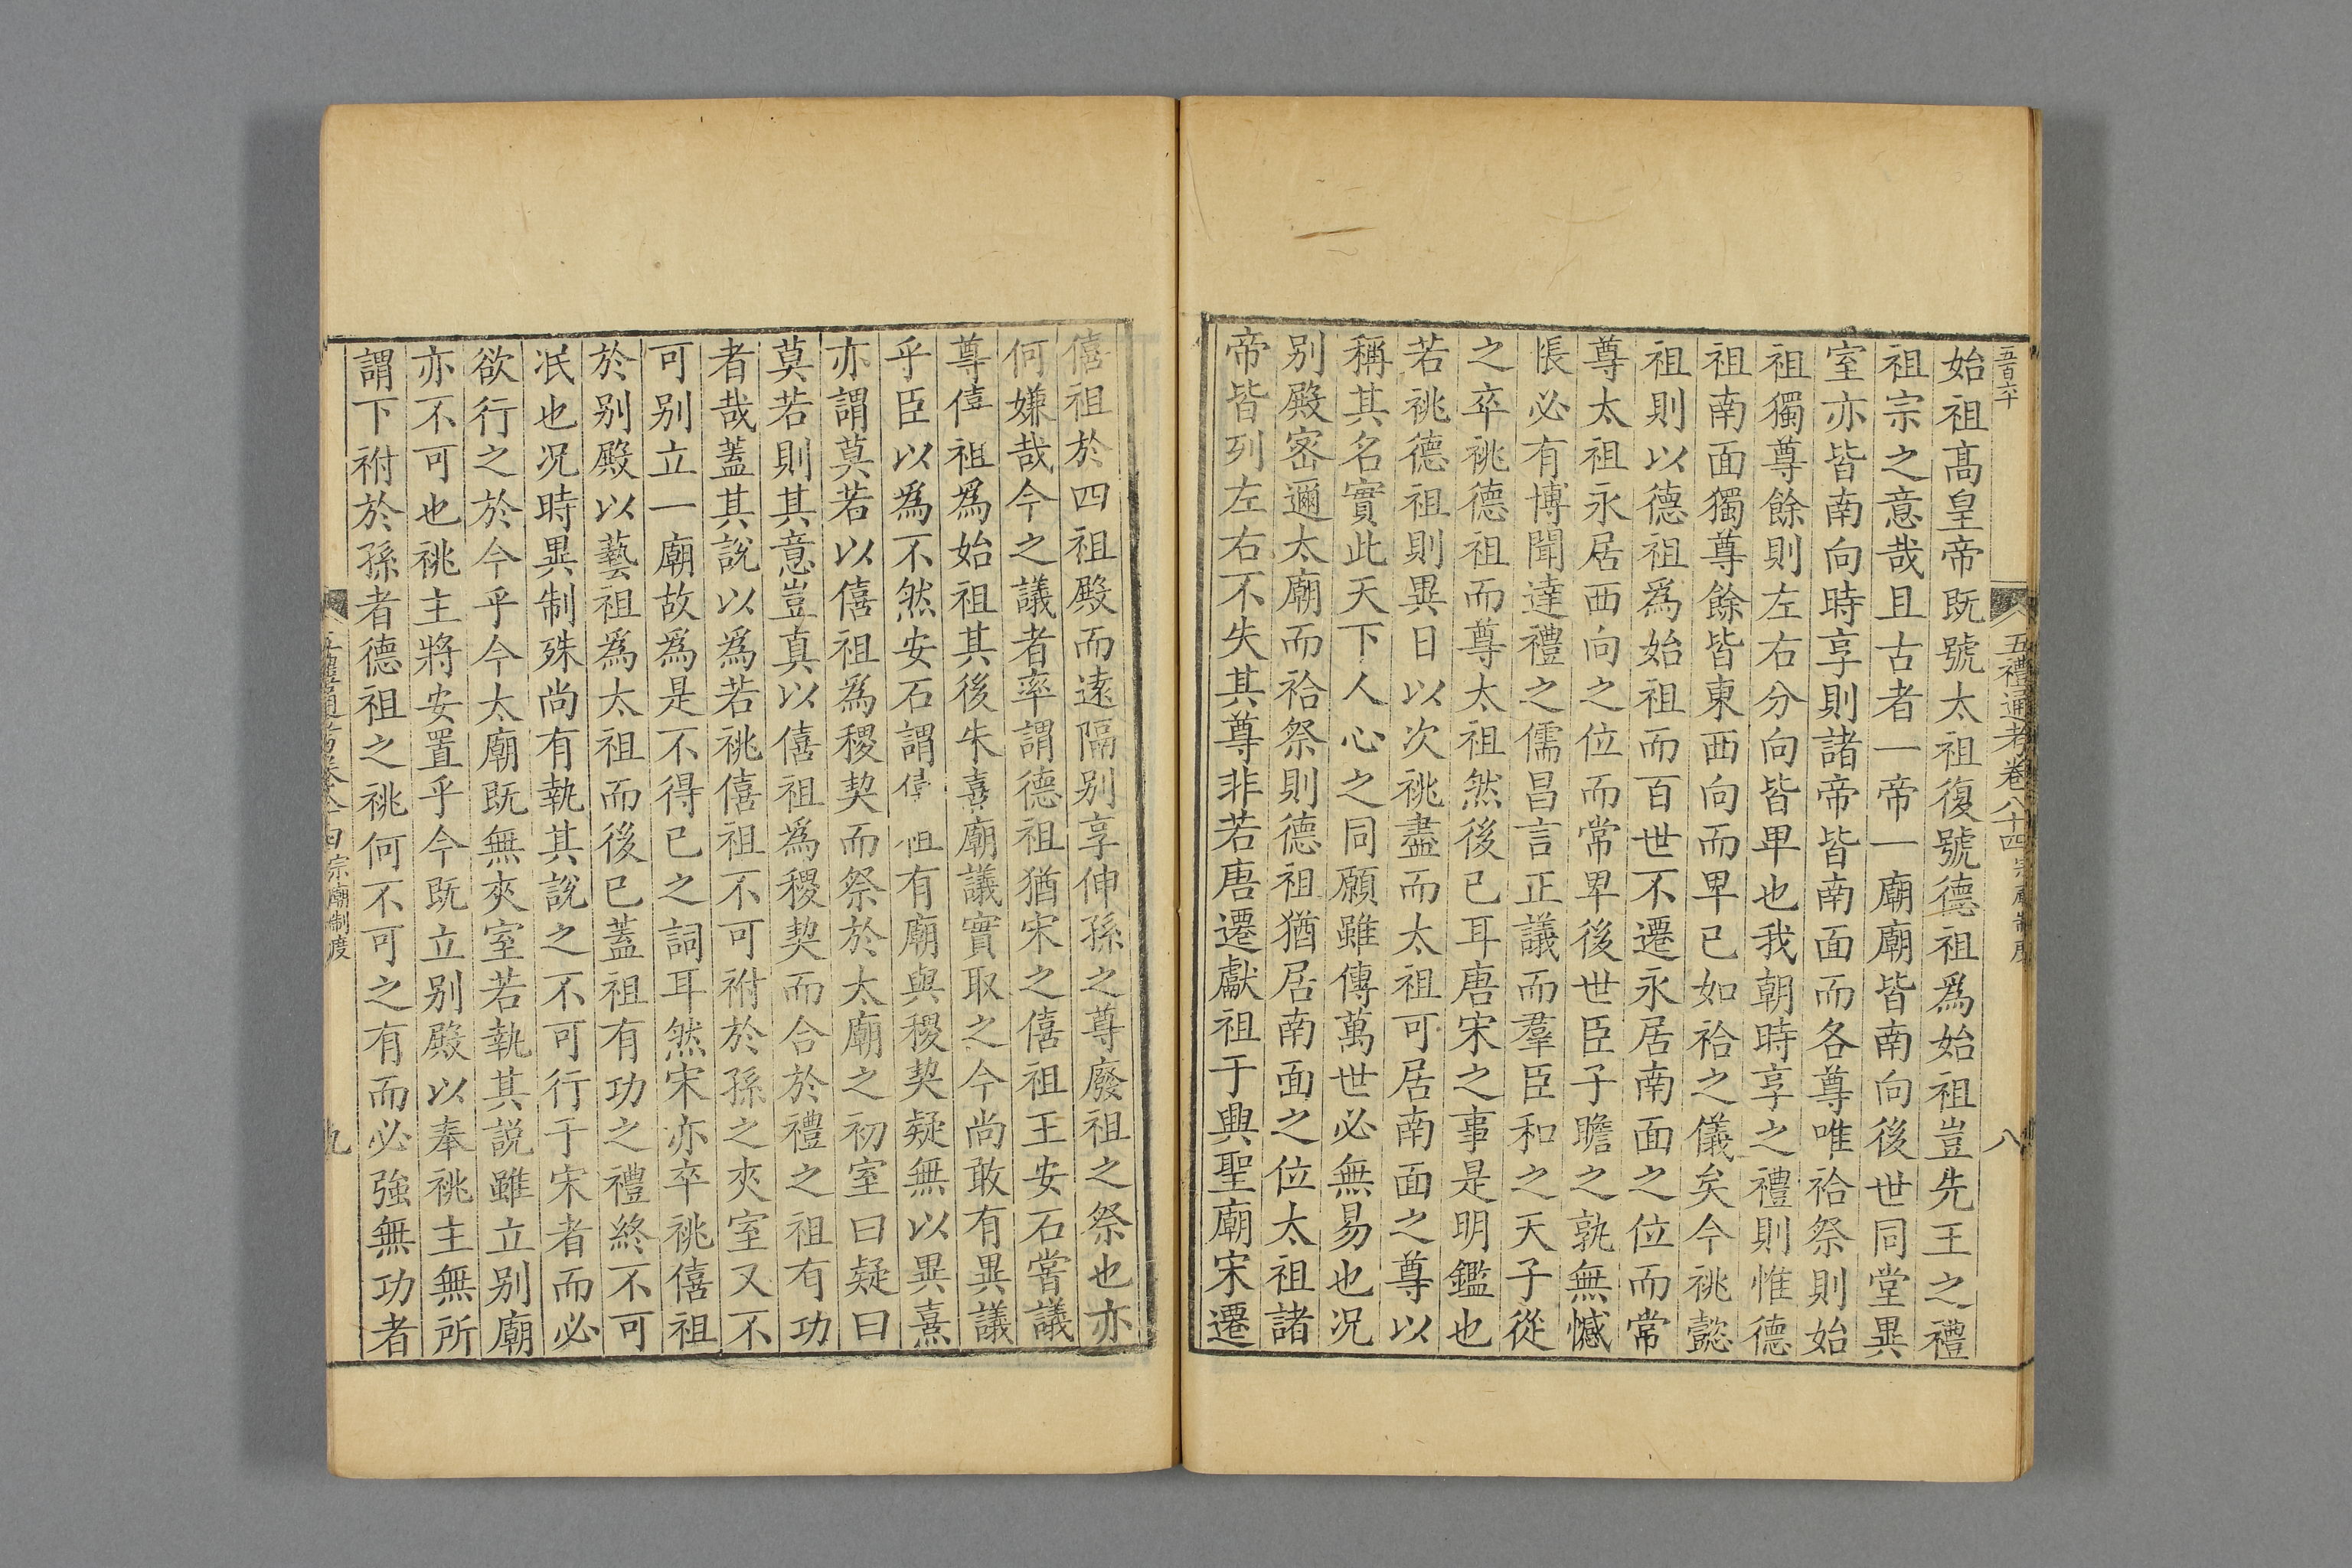 五百六十
五禮通考卷八十四 宗廟制度
八
始祖高皇帝既號太祖復號德祖爲始祖豈先王之禮
祖宗之意哉且古者一帝一廟廟皆南向後世同堂異
室亦皆南向時享則諸帝皆南面而各尊唯祫祭則始
祖獨尊餘則左右分向皆卑也我朝時享之禮則惟德
祖南面獨尊餘皆東西向而卑已如祫之儀矣今祧懿
祖則以德祖爲始祖而百世不遷永居南面之位而常
尊太祖永居西向之位而常卑後世臣子瞻之孰無憾
悵必有博聞達禮之儒昌言正議而羣臣和之天子從
之卒祧德祖而尊太祖然後已耳唐宋之事是明鑑也
若祧德祖則異日以次祧盡而太祖可居南面之尊以
稱其名實此天下人心之同願雖傳萬世必無易也况
别殿密邇太廟而祫祭則德祖猶居南面之位太祖諸
帝皆列左右不失其尊非若唐遷獻祖于興聖廟宋遷
僖祖於四祖殿而遠隔别享伸孫之尊廢祖之祭也亦
何嫌哉今之議者率謂德祖猶宋之僖祖王安石嘗議
尊僖祖爲始祖其後朱熹廟議實取之今尚敢有異議
乎臣以爲不然安石謂僖祖有廟與稷契疑無以異熹
亦謂莫若以僖祖爲稷契而祭於太廟之初室曰疑曰
莫若則其意豈真以僖祖爲稷契而合於禮之祖有功
者哉蓋其說以爲若祧僖祖不可祔於孫之夾室又不
可别立一廟故爲是不得已之詞耳然宋亦卒祧僖祖
於别殿以藝祖爲太祖而後已蓋祖有功之禮終不可
泯也况時異制殊尚有執其說之不可行于宋者而必
欲行之於今乎今太廟既無夾室若執其說雖立别廟
亦不可也祧主將安置乎今既立别殿以奉祧主無所
謂下祔於孫者德祖之祧何不可之有而必強無功者
五禮通考卷八十四 宗廟制度
九